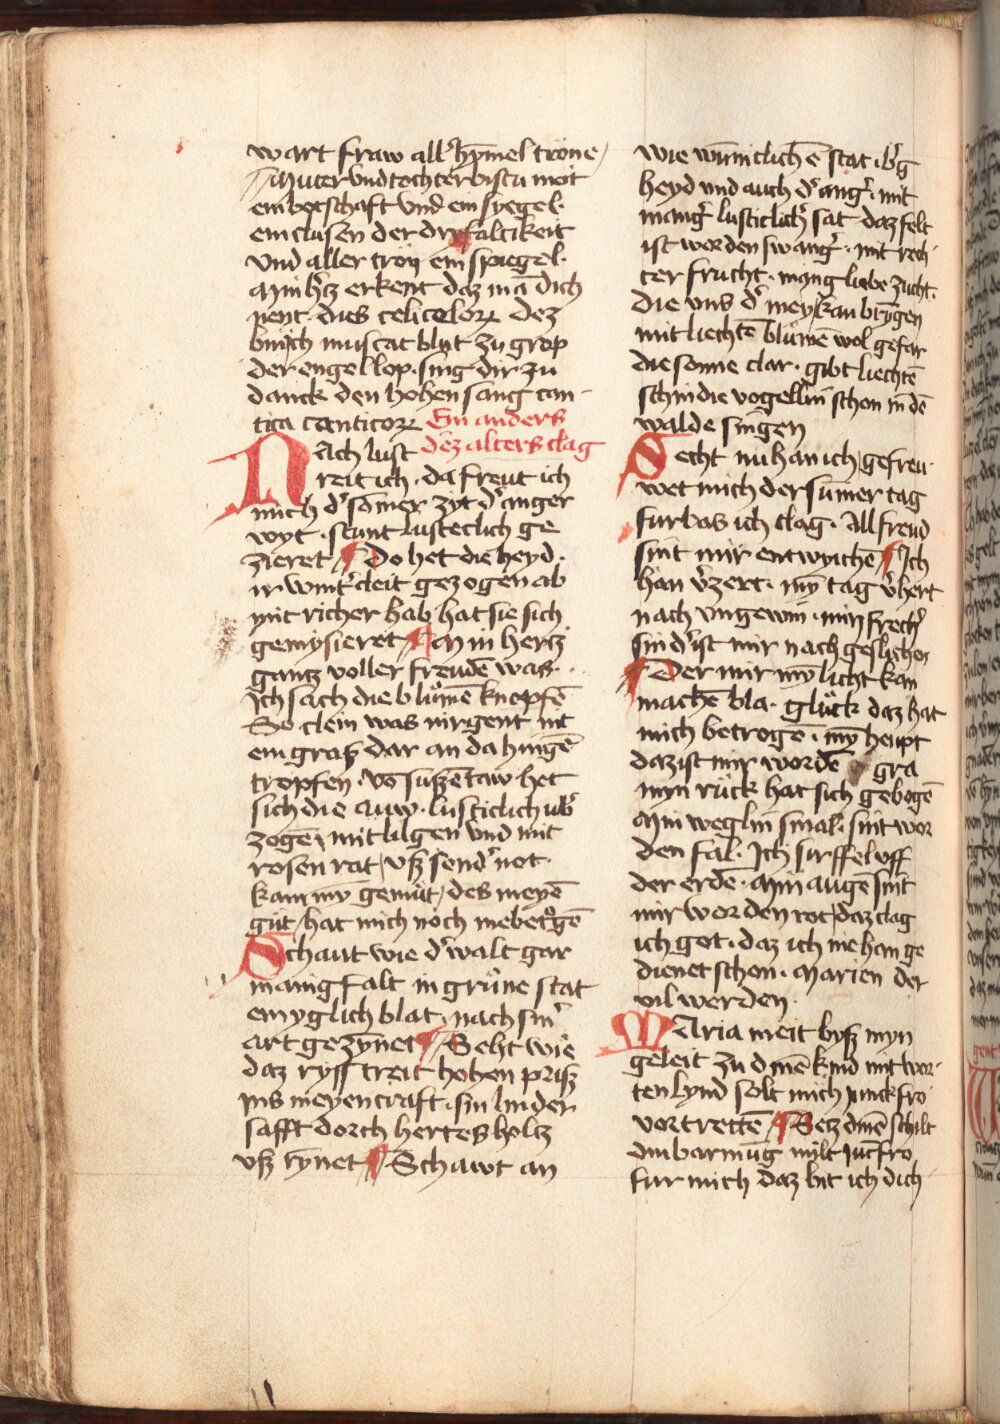 wart fraw allˀ hymel trone /
Muter vnd tochter bistu meit
ein botschaft vnd ein syegel·
ein clusen der dryfaltikeit
vnd aller troy ein spiegel·
Myn hˀtz erkent daz mā dich
nent· dies celicolorꝝ dez
bin ich muscat blut zu grop
der engel lop· sing dir zu
danck den hohen sang can-
tica canticorꝝ Ein anders
dez alters clag
NAch lust
reit ich· da freut ich
mich dˀ sōmer zyt dˀ anger
wyt· stunt lusteclich ge
zieret ¶ Do het die heyd·
ir wintˀ cleit gezogen ab
mit richer hab hat sie sich
gemysieret ¶ Myn hertz
gantz voller freudē was·
Ich sach die blůmē knopfē
So clein was nirgent nit
ein graß dar an da hingē
tropfen· vō sußē taw het
sich die auw· lusticlich ubˀ
zogē mit lilgen vnd mit
rosen rat / vß sendˀ not·
kam my gemůt / des meyē
gůt / hat mich noch nie betrogē
Schaut wie dˀ walt gar
manigfalt in grůne stat
ein yglich blat· nach sinˀ
art gezynet ¶ Seht wie
daz ryff treit hohen priß
ins meyen craft· sin linder
safft dorch hertes holtz
vß rynet ¶ Schawt an
wie wūniclichē stat· bˀg
heyd vnd auch dˀ angˀ· mit
mangˀ lusticlichˀ sat daz felt
ist worden swangˀ· mit rech
ter frucht· mang liebe zucht·
die vns dˀ mey kan bryngen
mit liechtē blůmē wol gefar
die sonne clar· gibt liechtē
schin die vogellin schon in dē
walde singen
Secht nu han ich gefreu
wet mich der sumer tag
furbas ich clag· All freud
sint mir entwichē ¶ Ich
han vˀzert· my tag vˀhert
nach vngewin· min frechˀ
sind ist mir nach geslichen
¶ Der mir my licht kan
machē bla· glůck daz hat
mich betrogē· my heupt
daz ist mir wordē gra
myn růck hat sich gebogē
Myn weglin smal· sint wor
den fal· Ich sirffel uff
der erdē· Myn augē sint
mir worden rot / daz clag
ich got· daz ich nie han ge
dienet schon· Marien der
vil werden·
MAria meit byß myn
geleit zu dinē kind mit wor-
ten lynd solt mich junckfro
vortrettē ¶ Setz dinē schilt
din barmūg milt jūcfro
fur mich daz bit ich dich